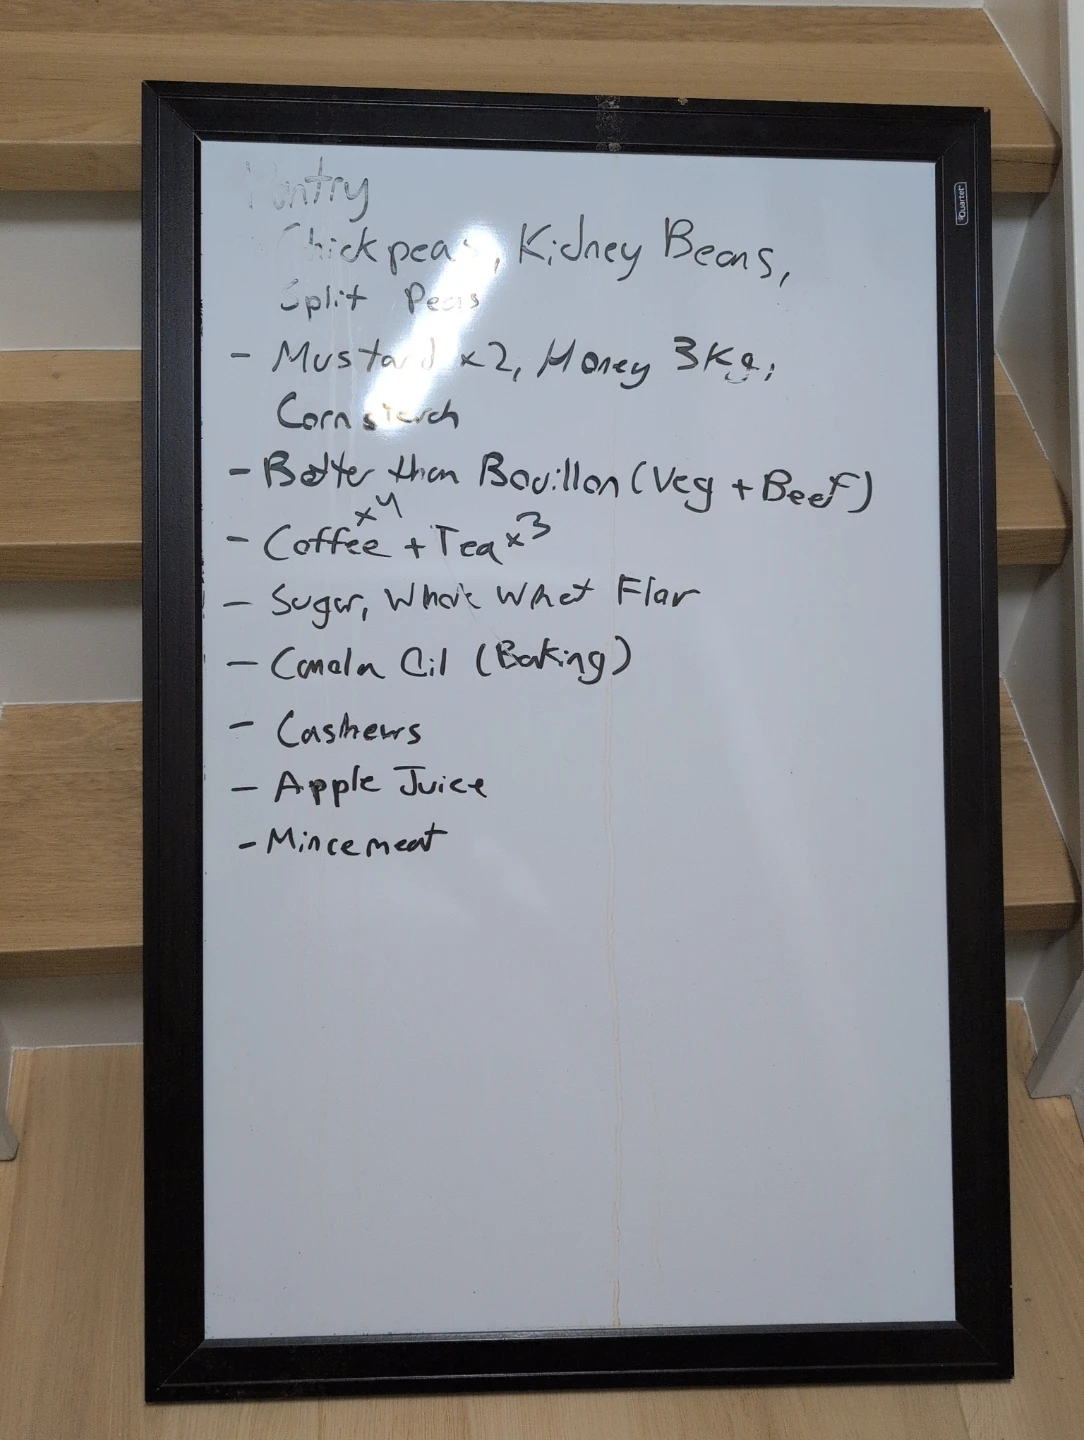 Pantry
Quartet
Chickpeas, Kidney Beans,
Split Peas
- Mustard x2, Honey 3Kg,
Cornstarch
- Better than Bouillon (Veg + Beef)
x4
- Coffee + Tea x3
- Sugar, Whole Whet Flar
- Canola Oil (Baking)
- Cashews
- Apple Juice
- Mincemeat